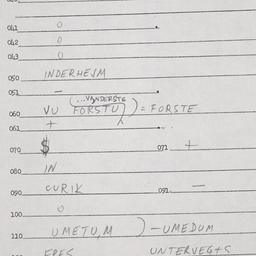 041 0
042 0
043 0
050 INDERHEJM
051 –
(...VANDERSTE
060 VU FORSTU) = FORSTE
061 +
070 $ 071 +
080 IN
090 CURIK 091 –
100 0
110 UMETU,M ) – UMEDUM
EPES UNTERVEGTS